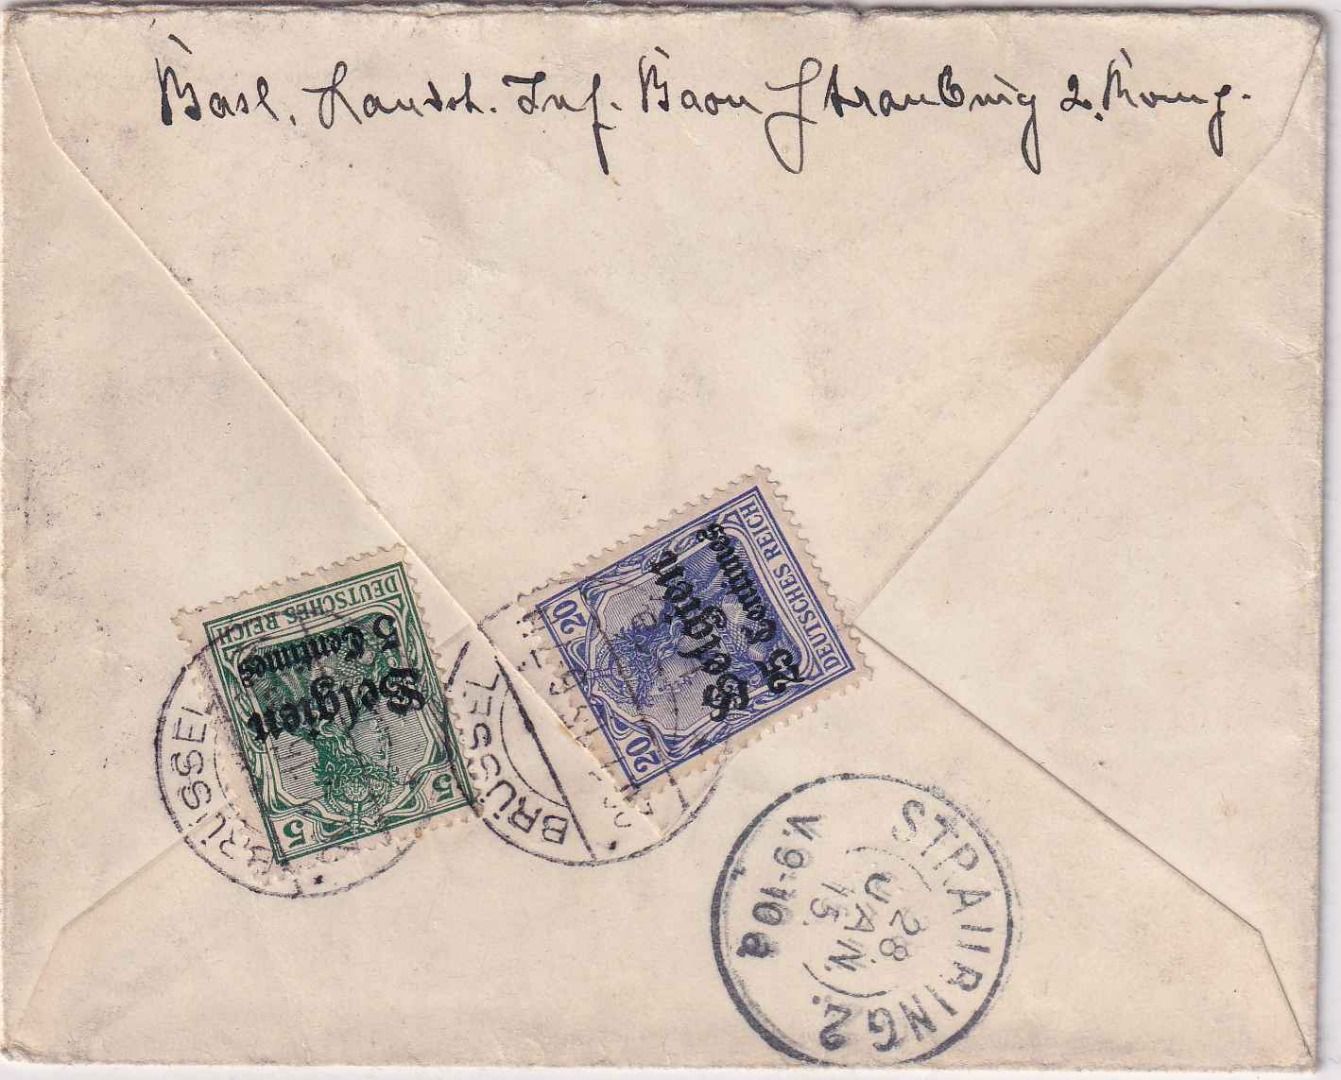 Basl, Landst. Inf. Baon Straubing 2. Komp.
DEUTSCHES REICH
Belgien
5 Centimes
5
5
DEUTSCHES REICH
Belgien
25 Centimes
20
20
BRÜSSEL
BRÜSSEL
STRAUBING 2.
28
JAN.
15
V.9-10a